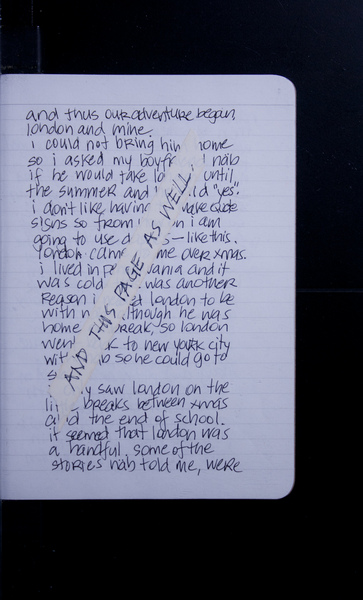 and thus our adventure began,
london and mine.
i could not bring him home
so i asked my boyfr nab
if he would take lo until
the summer and "yes".
i don't like having make quote
signs so from n i am
going to use d — like this.
london came me over xmas.
i lived in p vania and it
was cold was another
reason i et london to be
with n though he was
home break, so london
wen k to new york city
wit b so he could go to
s
y saw london on the
li breaks between xmas
and the end of school.
it seemed that london was
a handful. some of the
stories nab told me, were
AND THIS PAGE AS WELL.